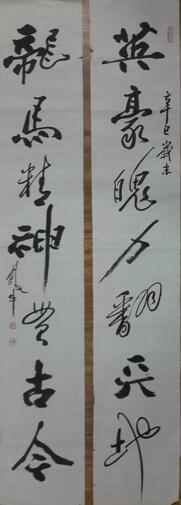 英豪魄力翻天地
辛巳歲末
龍馬精神貫古今